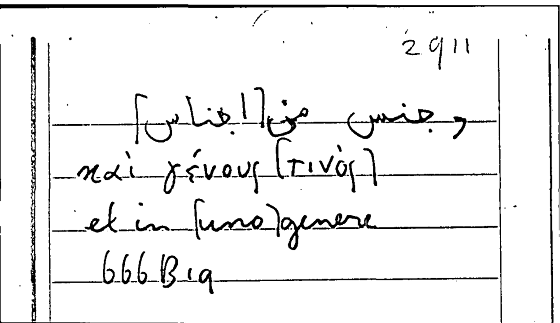 2911
وجنس من [اجناس]
καὶ γένους [τινός]
et in [uno] genere
666 B 19